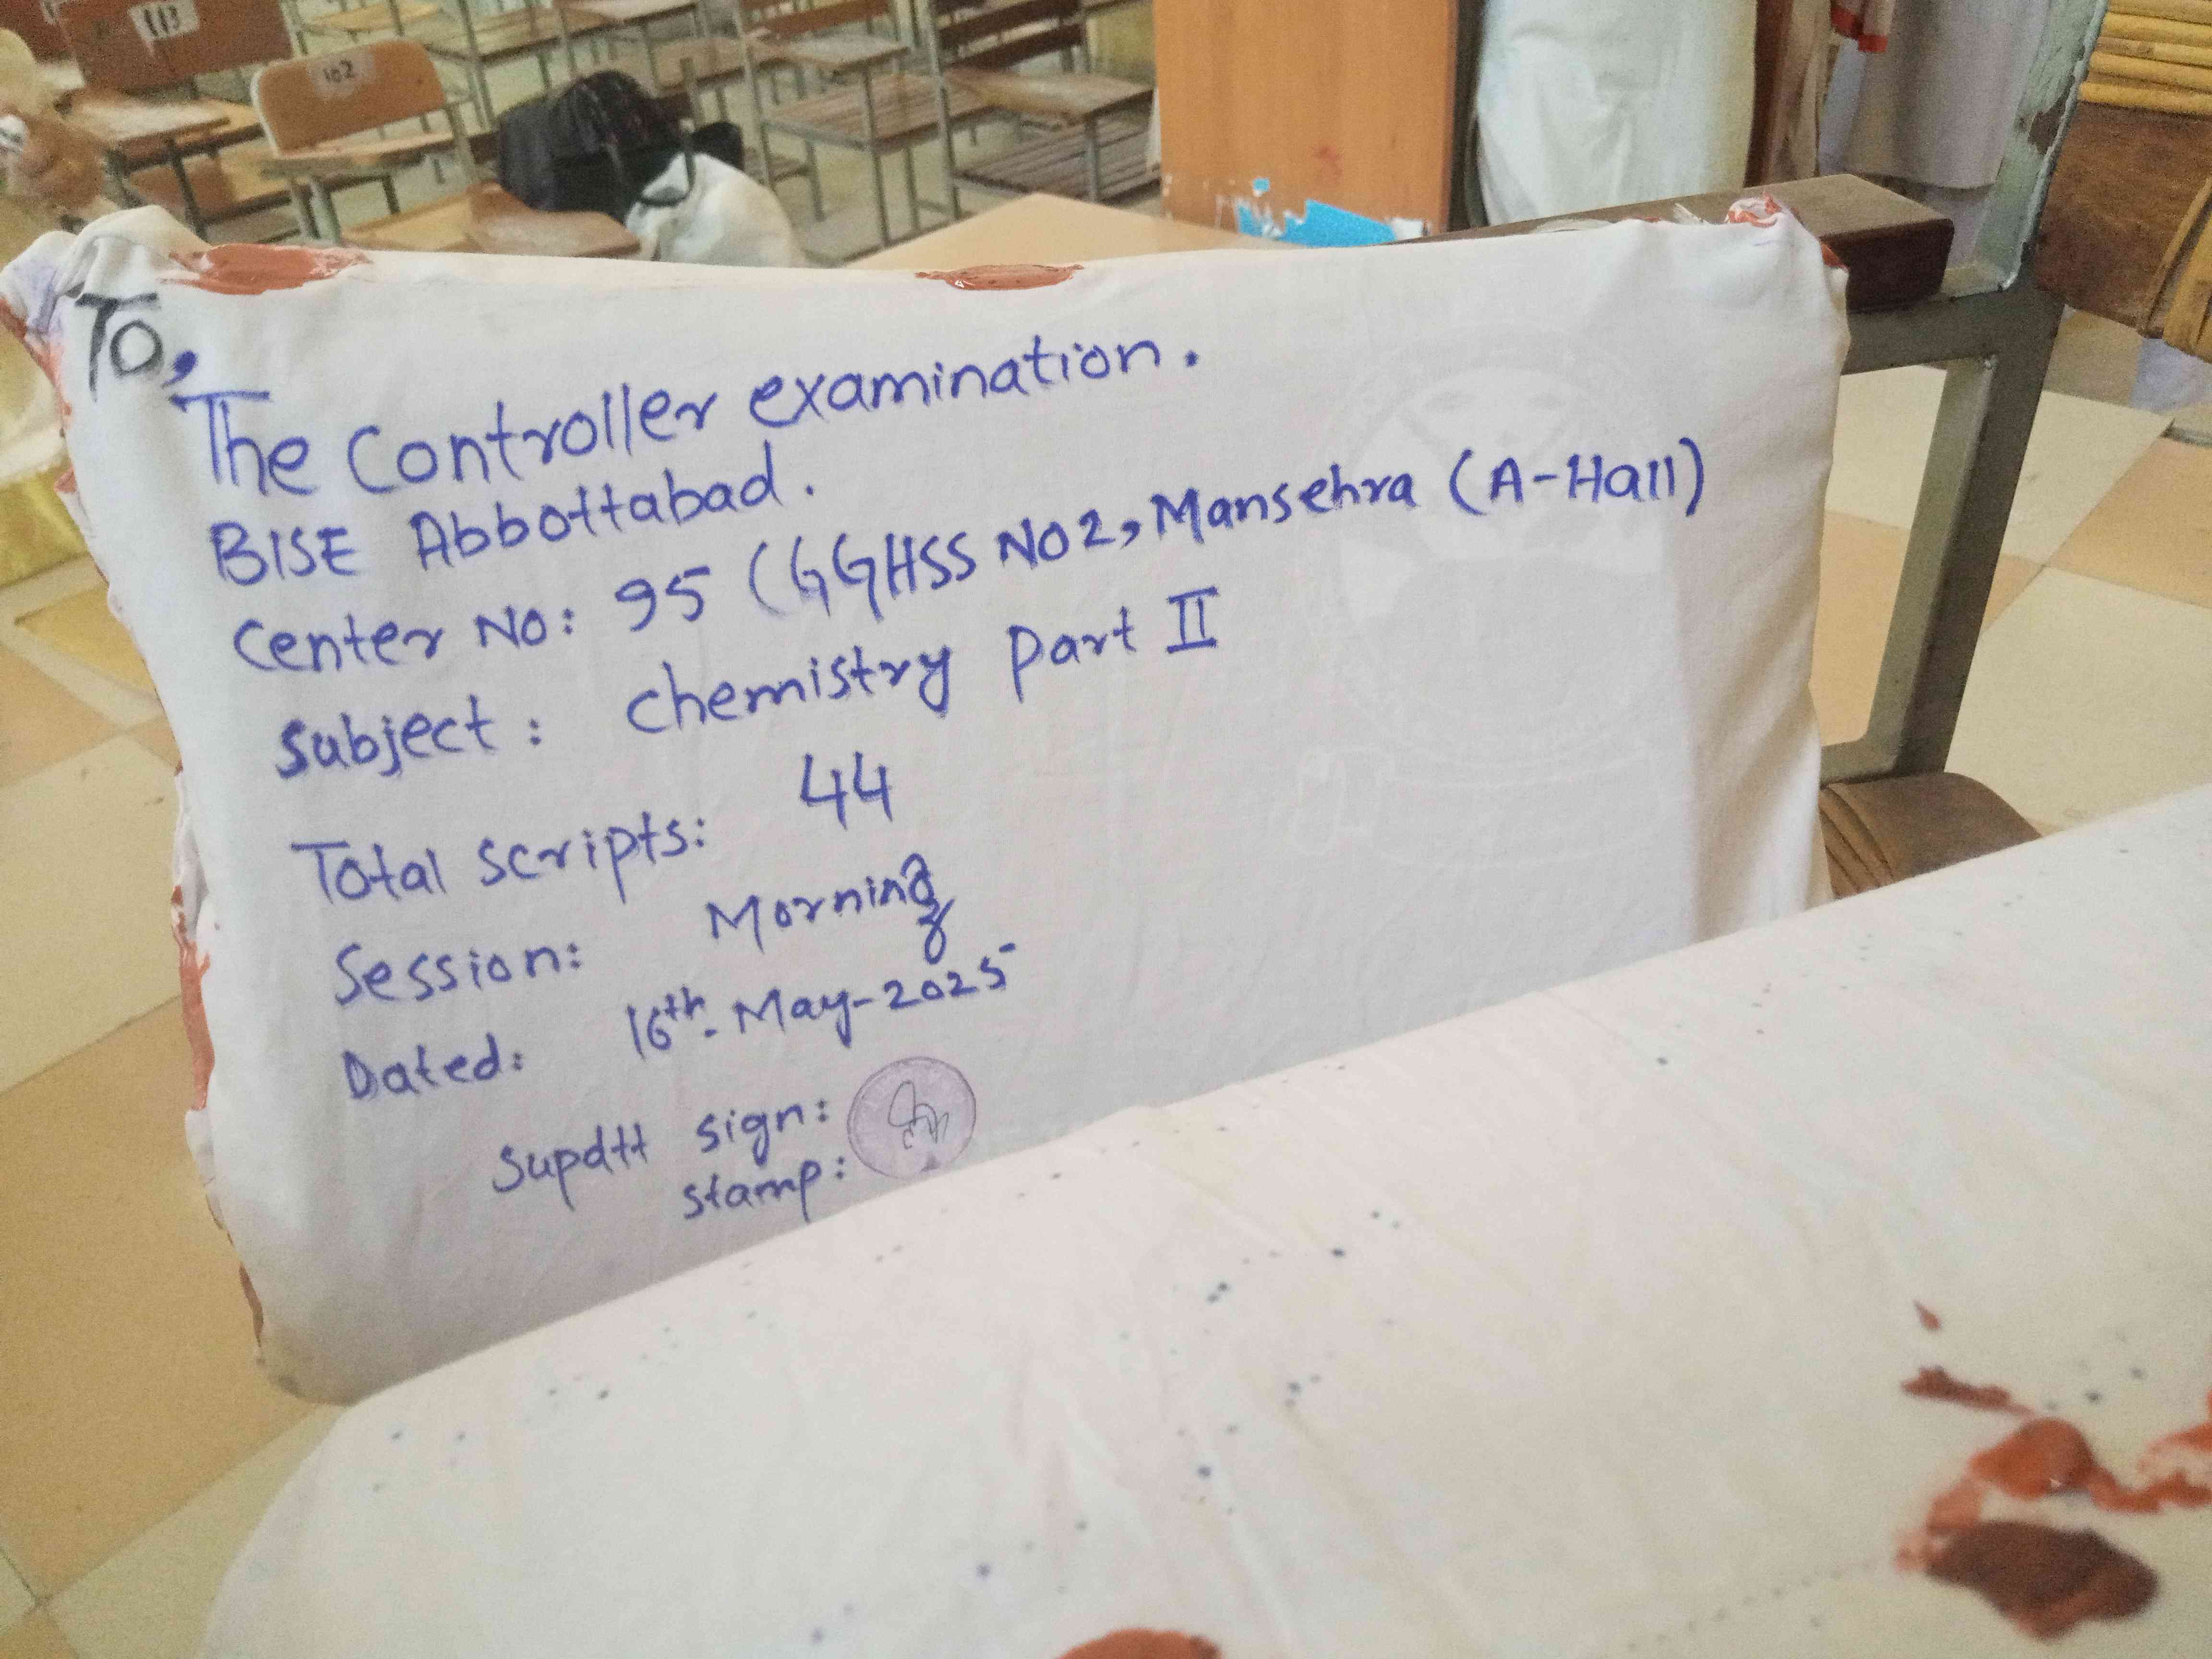 113
102
To,
The Controller examination.
BISE Abbottabad.
Center No: 95 (GGHSS NO2, Mansehra (A-Hall)
Subject: Chemistry part II
Total scripts: 44
Session: Morning
Dated: 16th-May-2025
Supdtt sign:
stamp: